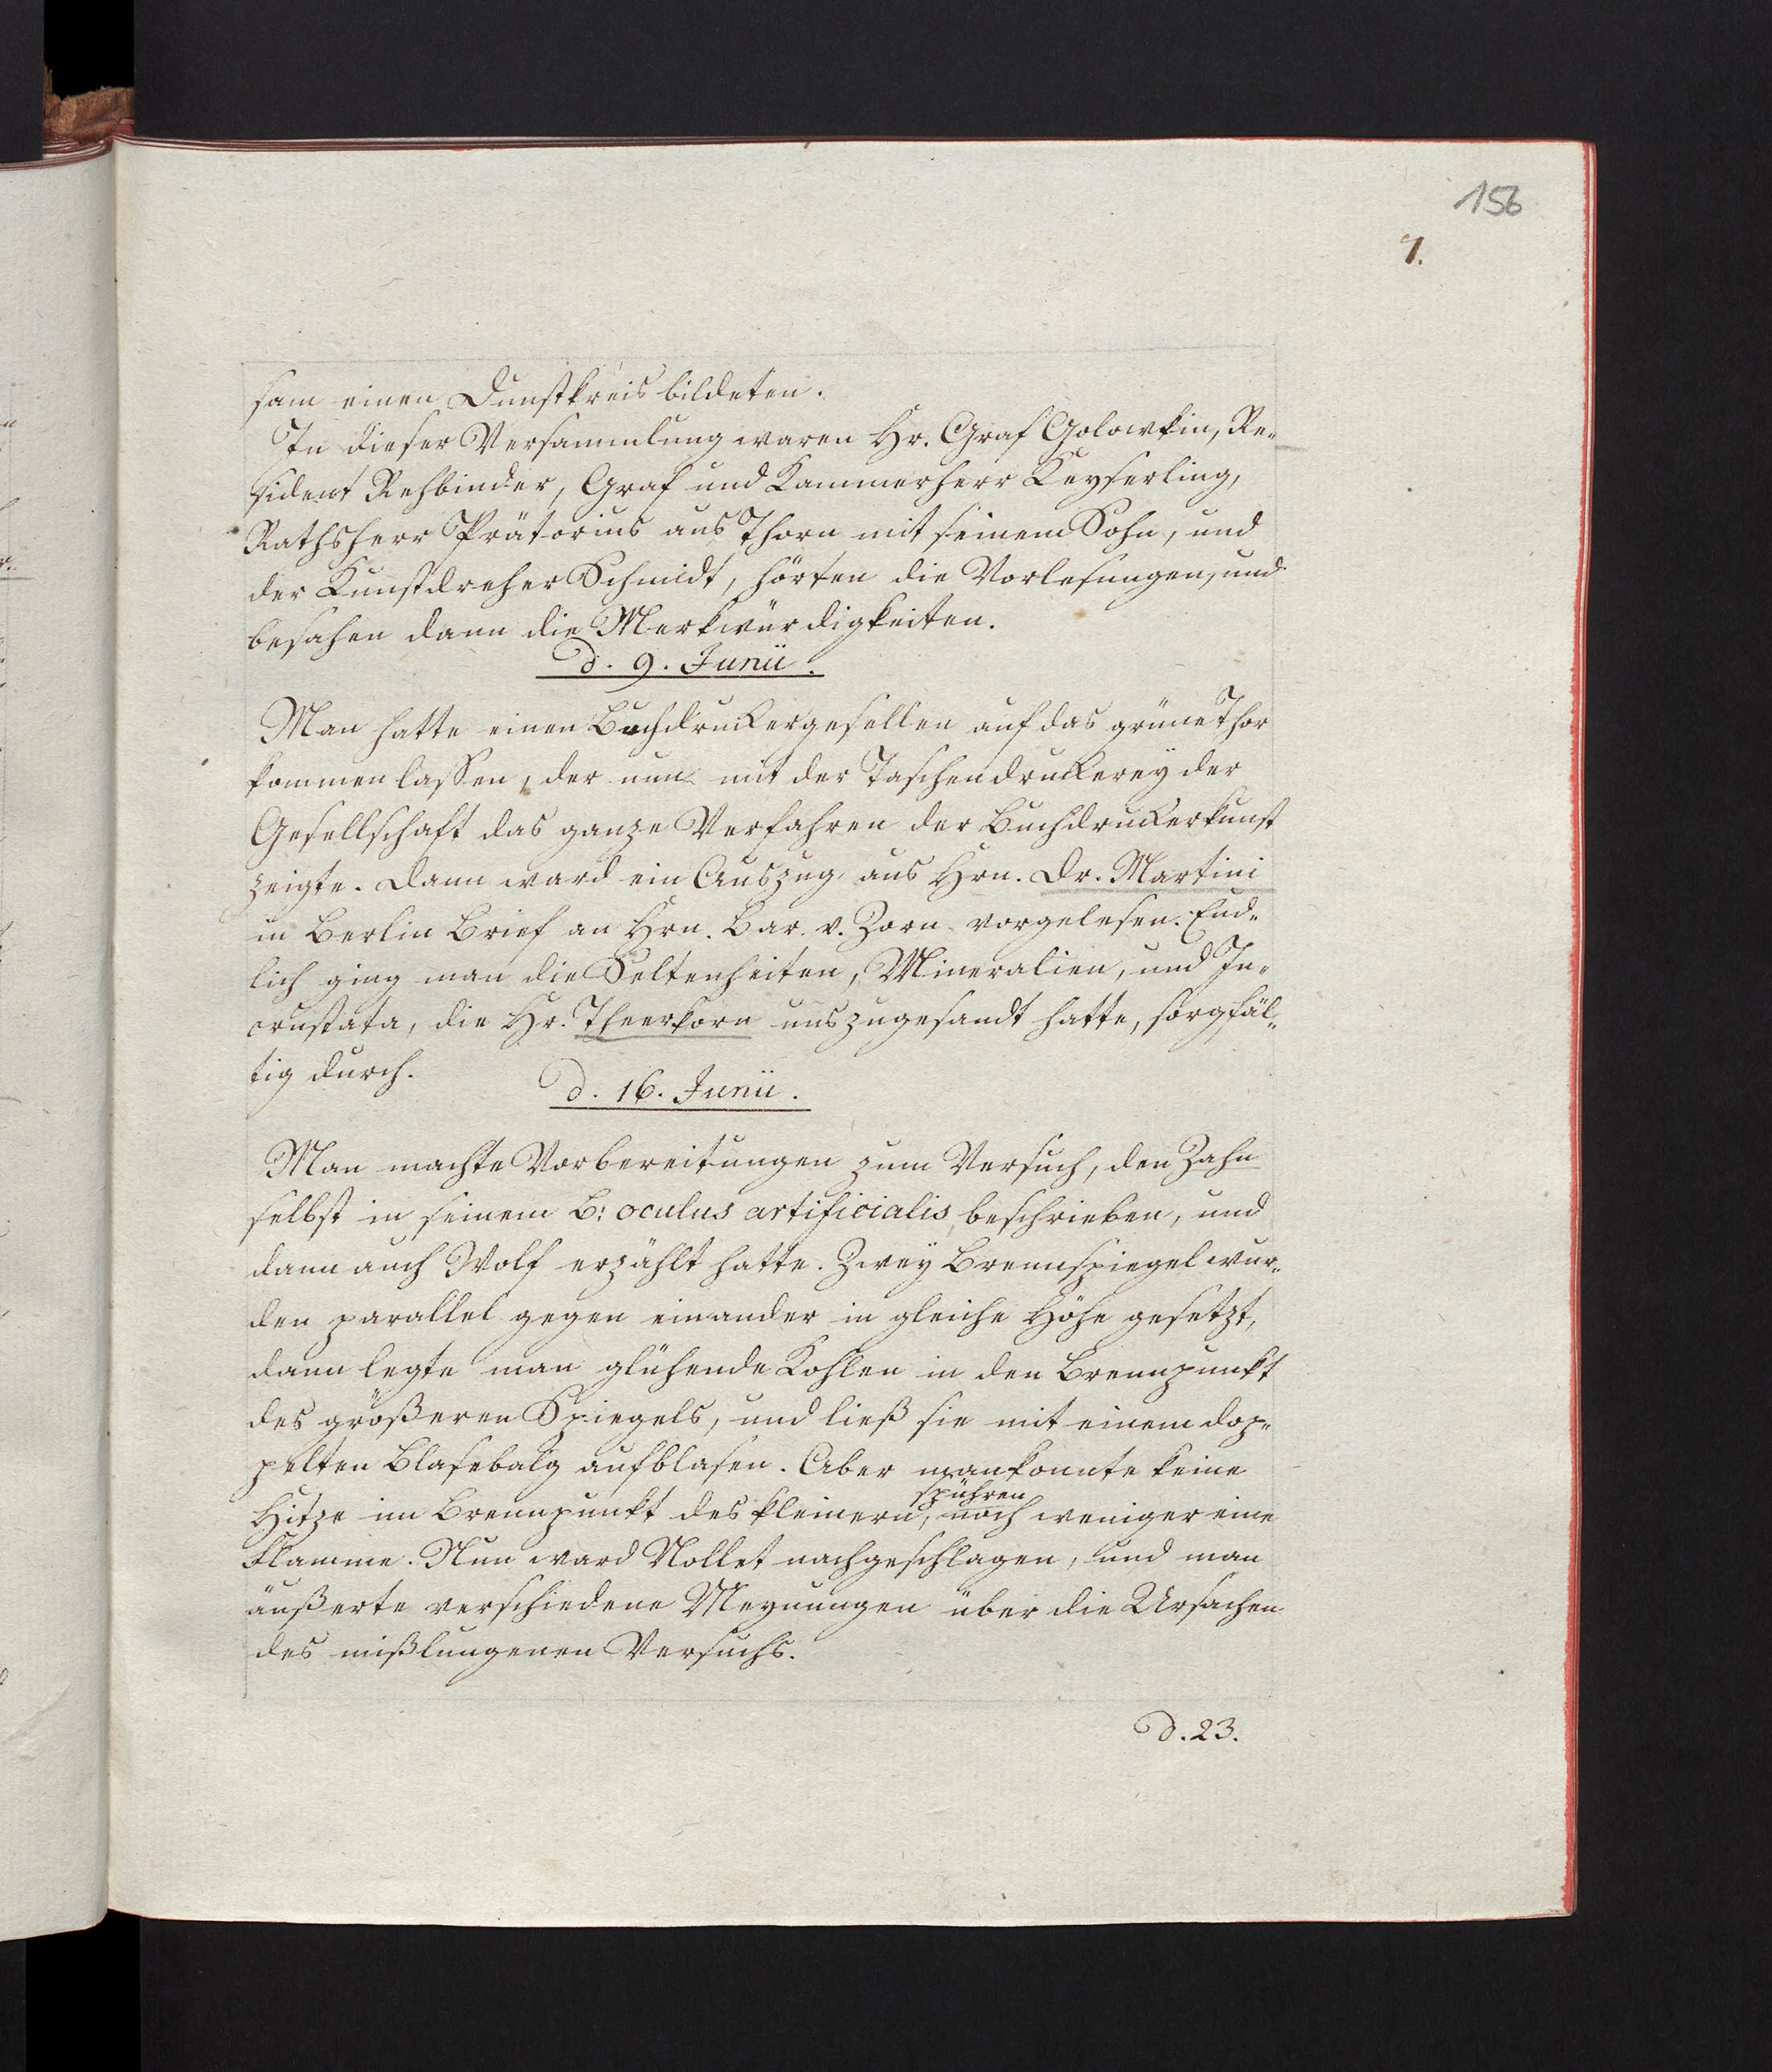 156
7.
sam einen Dunstkreis bildeten.
In dieser Versammlung waren Hr. Graf Golowkin, Re-
sident Rehbinder, Graf und Kammerherr Keyserling,
Rathsherr Prätorius aus Thorn mit seinem Sohn, und
der Kunstdreher Schmidt, hörten die Vorlesungen, und
besahen dann die Merkwürdigkeiten.
d. 9. Junii.
Man hatte einen Buchdruckergesellen auf das grüne Thor
kommen lassen, der nun mit der Taschendruckerey der
Gesellschaft das ganze Verfahren der Buchdruckerkunst
zeigte. Dann ward ein Auszug aus Hrn. Dr. Martini
in Berlin Brief an Hrn. Bar. v. Zorn vorgelesen. End-
lich ging man die Seltenheiten, Mineralien, und In-
crustata, die Hr. Theerkorn uns zugesandt hatte, sorgfäl-
tig durch.
d. 16. Junii.
Man machte Vorbereitungen zum Versuch, den Zahn
selbst in seinem B: oculus artificialis beschrieben, und
dann auch Wolf erzählt hatte. Zwey Brennspiegel wur-
den parallel gegen einander in gleiche Höhe gesetzt,
dann legte man glühende Kohlen in den Brennpunkt
des größeren Spiegels, und ließ sie mit einem dop-
pelten Blasebalg aufblasen. Aber man konnte keine
spühren
Hitze im Brennpunkt des kleinern, noch weniger eine
Flamme. Nun ward Nollet nachgeschlagen, und man
äußerte verschiedene Meynungen über die Ursachen
des mißlungenen Versuchs.
d. 23.